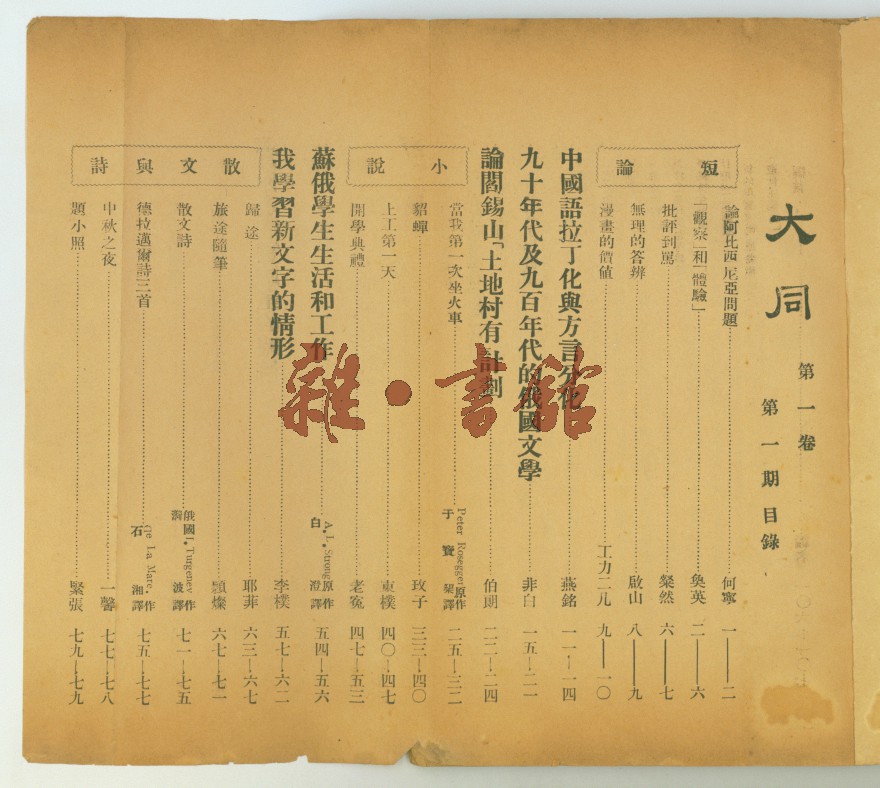 大同
第一卷
第一期目錄
短論
論阿比西尼亞問題 何寧 一——二
「觀察」和「體驗」 奐英 二——六
批評到罵 粲然 六——七
無理的答辨 啟山 八——九
漫畫的價值 工力二凡 九——一〇
中國語拉丁化與方言分化 燕銘 一一—一四
九十年代及九百年代的俄國文學 非白 一五—二一
論閻錫山「土地村有」計劃 伯朗 二二—二四
小說
當我第一次坐火車 Peter Rosegger原作 于賓栞譯 二五—三二
貂蟬 玫子 三三—四〇
上工第一天 東樸 四〇—四七
開學典禮 老冤 四七—五三
蘇俄學生生活和工作 A. L. Strong原作 白澄譯 五四—五六
我學習新文字的情形 李樸 五七—六二
散文與詩
歸途 耶菲 六三—六七
旅途隨筆 穎燦 六七—七一
散文詩 俄國I. Turgenev作 波譯 七一—七五
德拉邁爾詩三首 De La Mare.作 石湘譯 七五—七七
中秋之夜 一馨 七七—七八
題小照 緊張 七九—七九
雜·書館